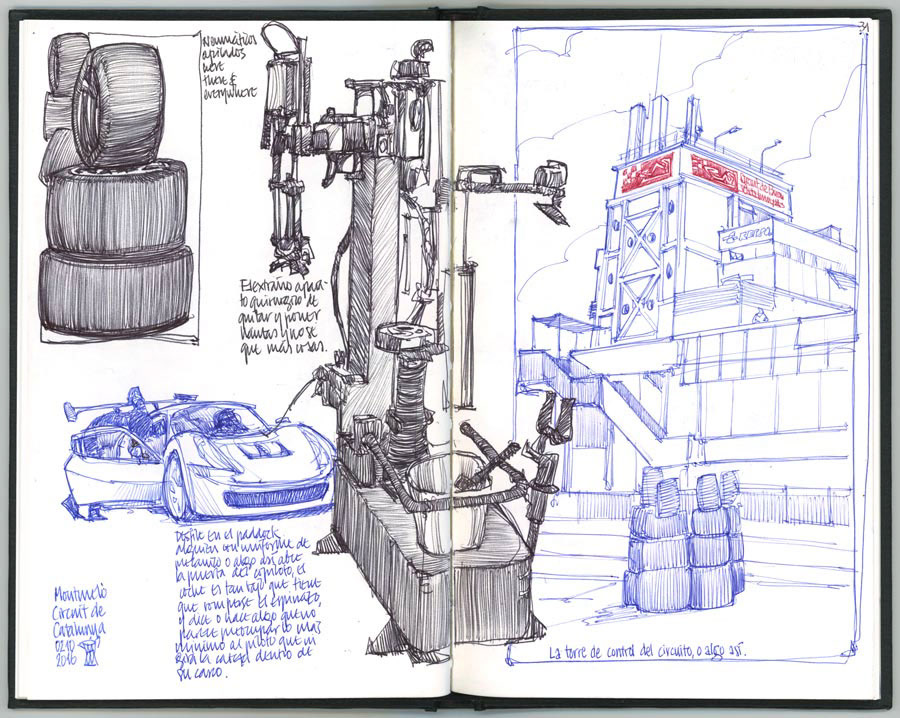 Neumáticos
apilados
here
there &
everywhere
El extraño apara-
to quirúrgico de
quitar y poner
llantas y no sé
que más cosas.
Desfile en el paddock
alguien con uniforme de
mecánico o algo así abre
la puerta del copiloto, el
coche es tan bajo que tiene
que romperse el espinazo,
y dice o hace algo que no
parece preocupar lo más
mínimo al piloto que ni
gira la cabeza dentro de
su casco.
Montmeló
Circuit de
Catalunya
0210
2016
31
Circuit de Barcelona
Catalunya
La torre de control del circuito, o algo así.